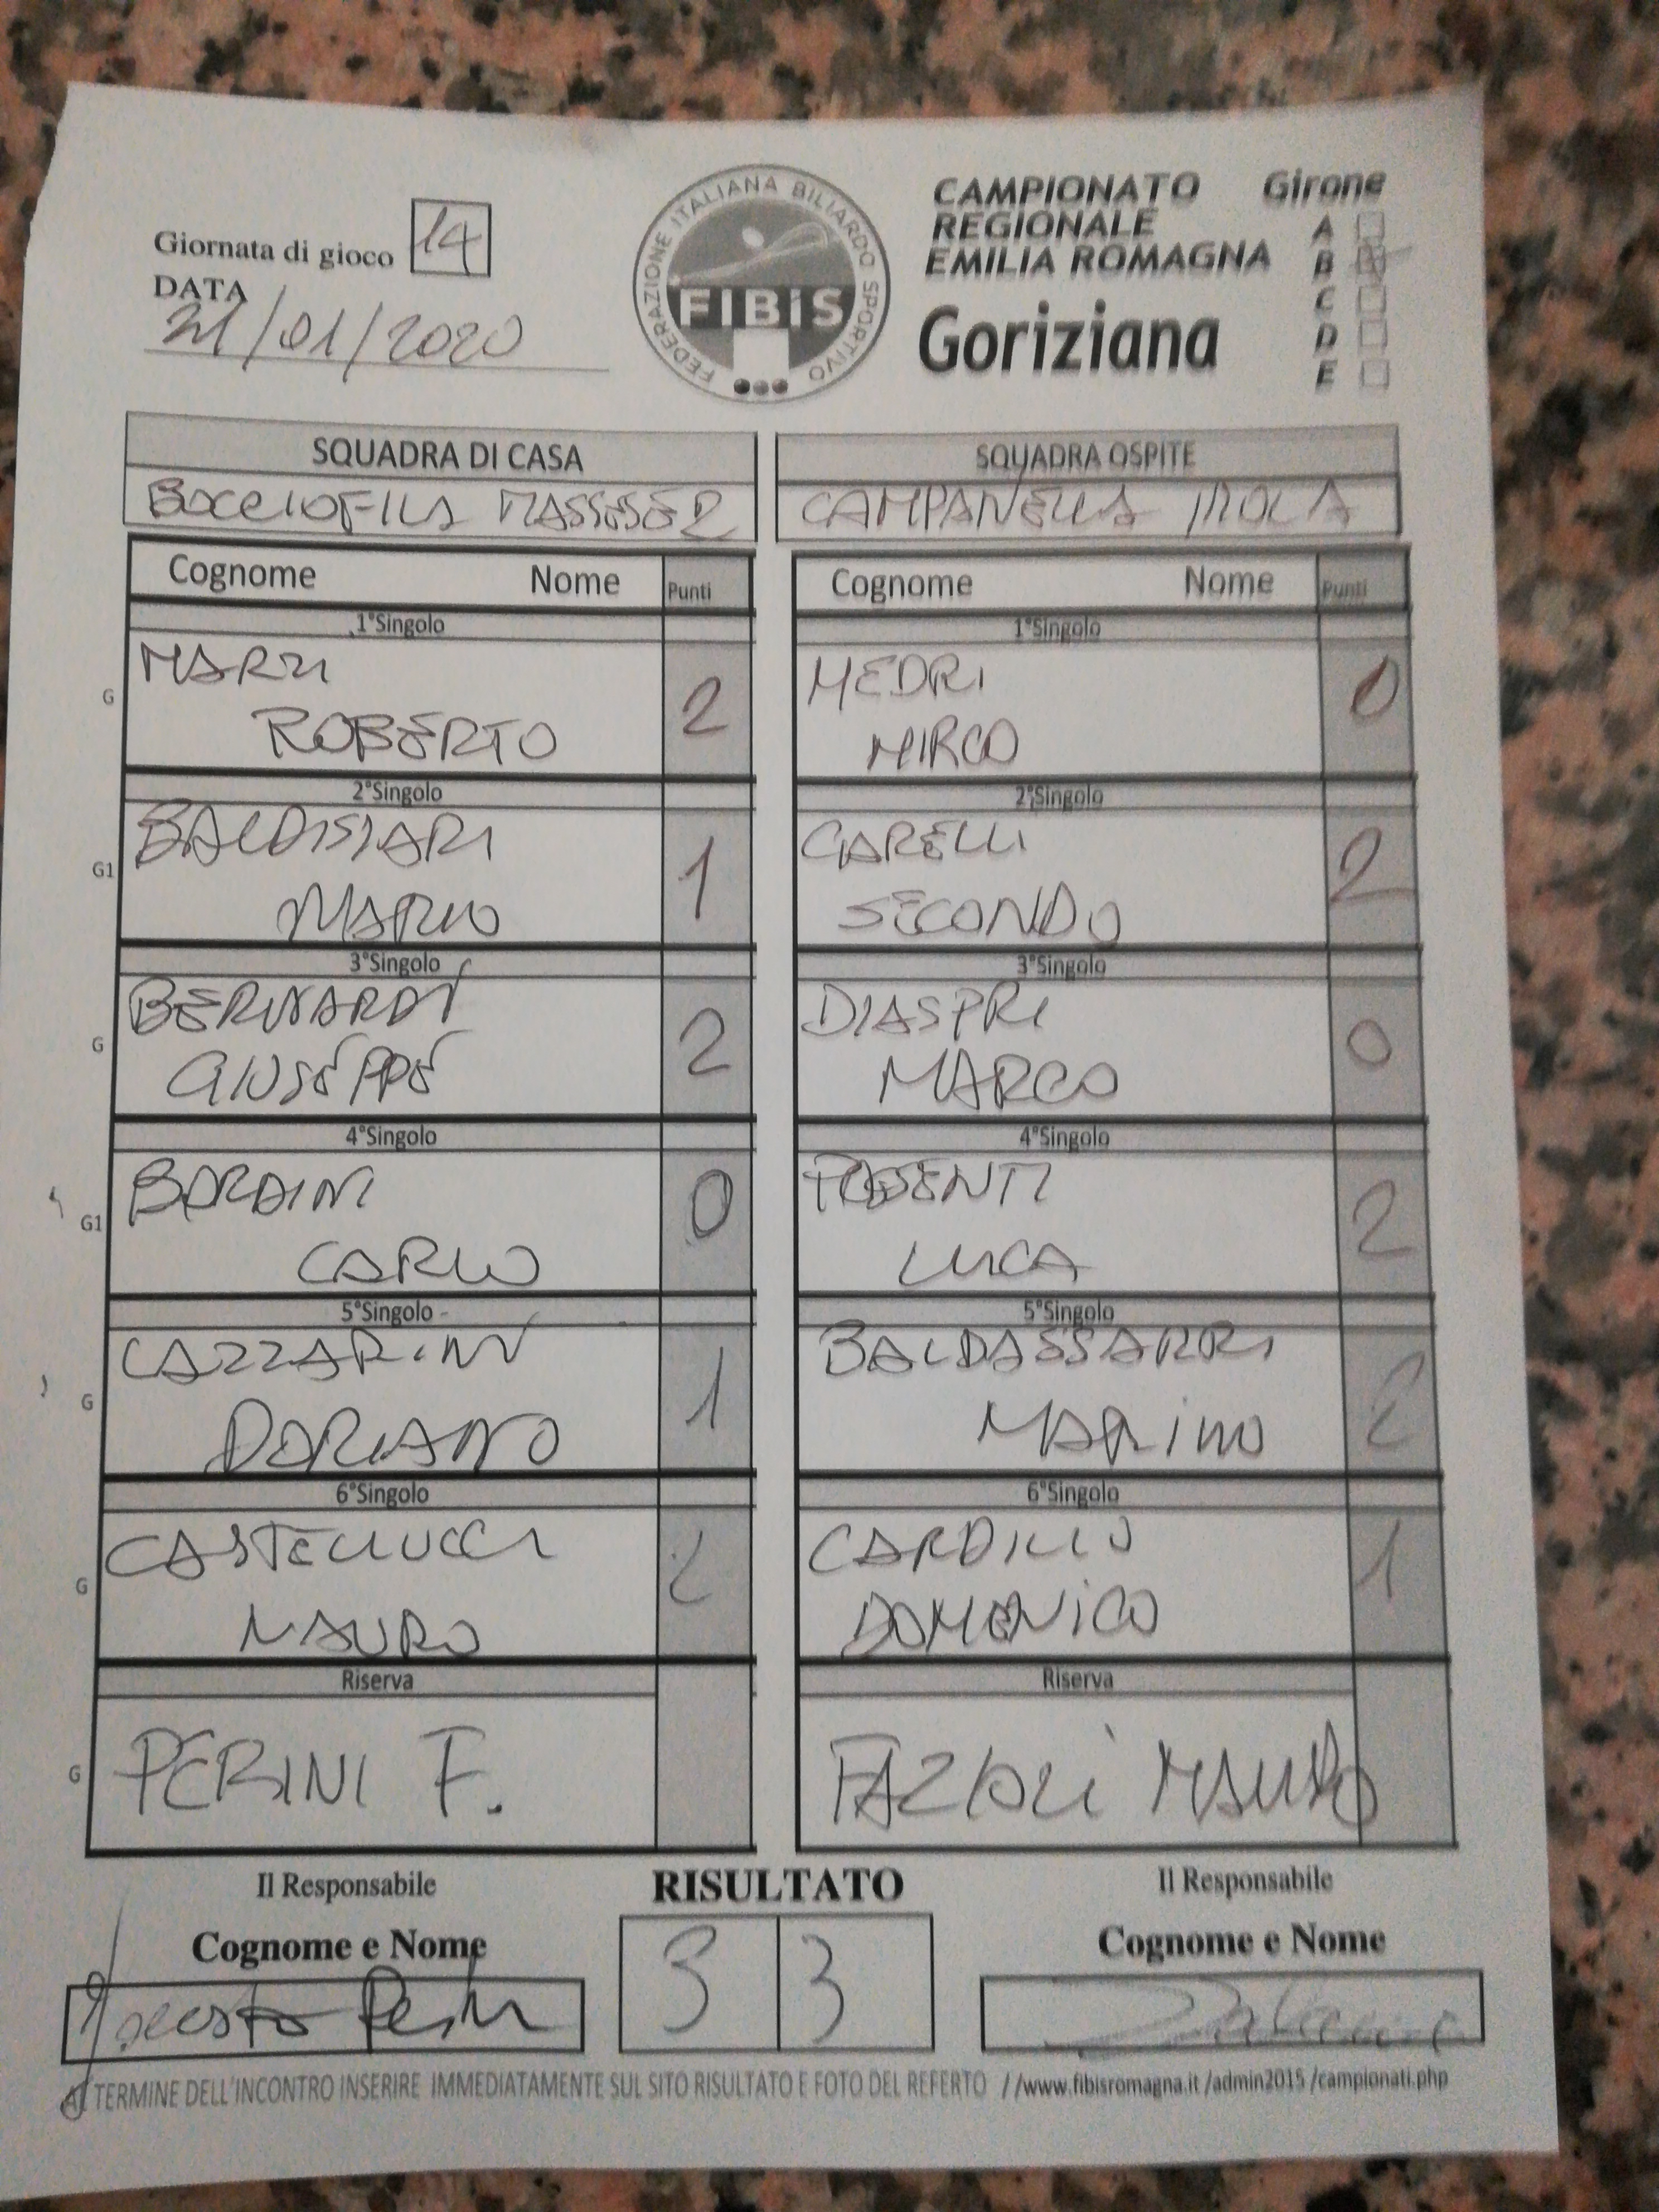 Giornata di gioco 14
DATA
21/01/2020
FEDERAZIONE ITALIANA BILIARDO SPORTIVO
FIBiS
CAMPIONATO
REGIONALE
EMILIA ROMAGNA
Goriziana
Girone
A
B
C
D
E
SQUADRA DI CASA
BOCCIOFILA MASSESE 2
SQUADRA OSPITE
CAMPANELLA IMOLA
Cognome Nome Punti
1°Singolo
G
MARZI 2
ROBERTO
2°Singolo
G1
BALDISSARI 1
MARIO
3°Singolo
G
BERNARDI 2
GIUSEPPE
4°Singolo
G1
BORDINI 0
CARLO
5°Singolo
G
CAZZARINI 1
DORIANO
6°Singolo
G
CASTELLUCCI 2
MAURO
Riserva
G
PERINI F.
Cognome Nome Punti
1°Singolo
MEDRI
MIRCO
2°Singolo
GARELLI 2
SECONDO
3°Singolo
DIASPRI 0
MARCO
4°Singolo
2
LUCA
5°Singolo
BALDASSARRI 2
MARINO
6°Singolo
CARDILLO 1
DOMENICO
Riserva
FAZIOLI MAURO
Il Responsabile
Cognome e Nome
RISULTATO
3 3
Il Responsabile
Cognome e Nome
AL TERMINE DELL'INCONTRO INSERIRE IMMEDIATAMENTE SUL SITO RISULTATO E FOTO DEL REFERTO //www.fibisromagna.it /admin2015 /campionati.php